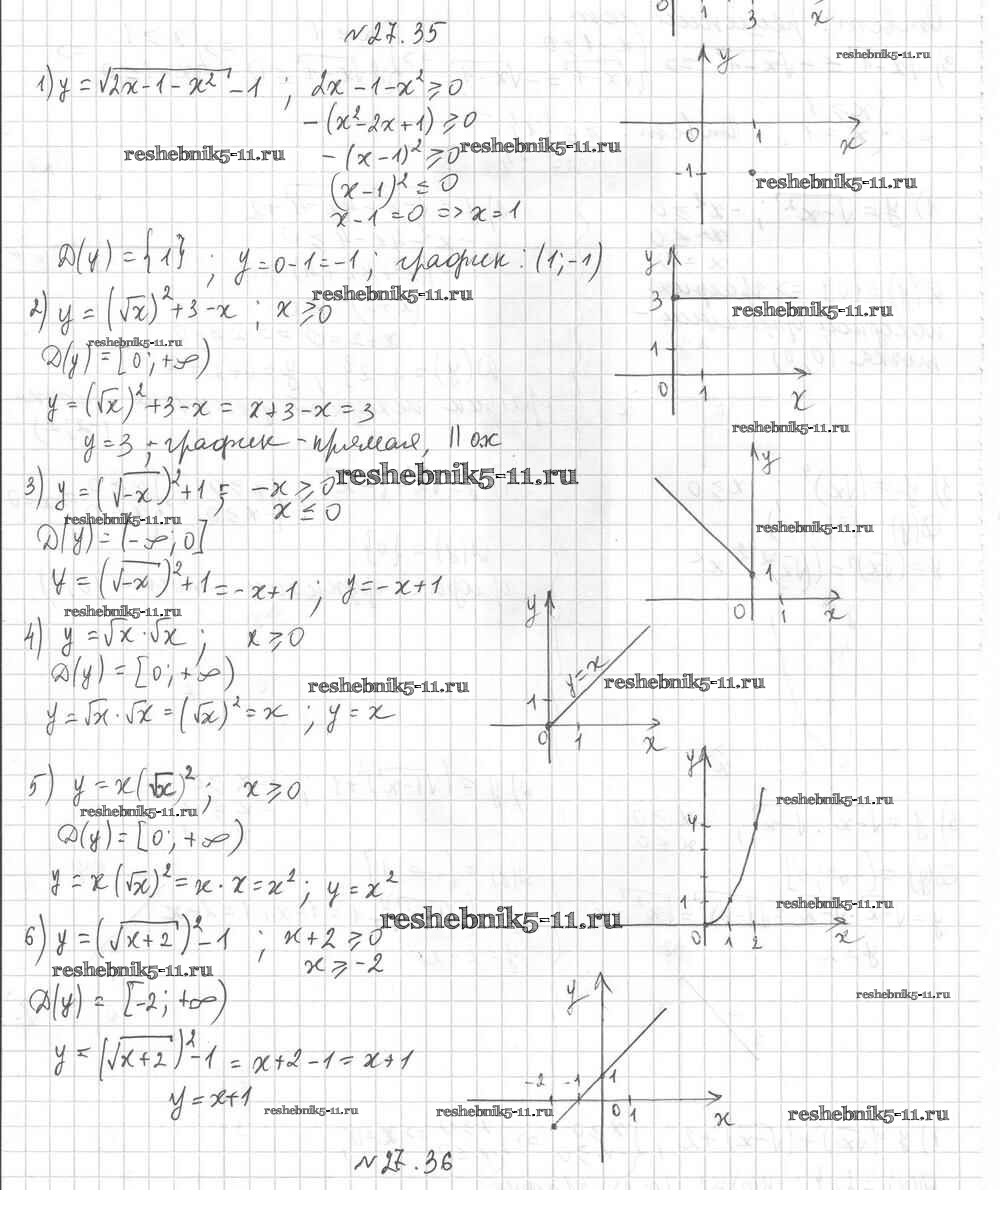 0 1 3 x
№27.35
reshebnik5-11.ru
1) y = √(2x-1-x²) -1 ; 2x-1-x² ≥ 0
-(x²-2x+1) ≥ 0
reshebnik5-11.ru
reshebnik5-11.ru
-(x-1)² ≥ 0
(x-1)² ≤ 0
x-1 = 0 => x=1
y
0 1 x
-1
reshebnik5-11.ru
D(y) = {1} ; y=0-1=-1 ; график: (1;-1)
reshebnik5-11.ru
2) y = (√x)² +3-x ; x ≥ 0
reshebnik5-11.ru
D(y) = [0;+∞)
y=(√x)²+3-x = x+3-x = 3
y=3 ; график - прямая, || ох
y
3
reshebnik5-11.ru
1
0 1 x
reshebnik5-11.ru
reshebnik5-11.ru
3) y = (√-x)²+1 ; -x ≥ 0
x ≤ 0
reshebnik5-11.ru
D(y) = (-∞;0]
y = (√-x)²+1 = -x+1 ; y=-x+1
reshebnik5-11.ru
y
reshebnik5-11.ru
1
0 1 x
4) y = √x · √x ; x ≥ 0
D(y) = [0;+∞)
reshebnik5-11.ru
y=√x · √x = (√x)² = x ; y = x
y
y=x
reshebnik5-11.ru
1
0 1 x
5) y = x(√x)² ; x ≥ 0
reshebnik5-11.ru
D(y) = [0;+∞)
y = x(√x)² = x · x = x² ; y = x²
y
reshebnik5-11.ru
4
1
reshebnik5-11.ru
0 1 2 x
reshebnik5-11.ru
6) y = (√(x+2))² -1 ; x+2 ≥ 0
x ≥ -2
reshebnik5-11.ru
D(y) = [-2;+∞)
y = (√(x+2))² -1 = x+2-1 = x+1
y = x+1
reshebnik5-11.ru
y
reshebnik5-11.ru
-2 -1 1
reshebnik5-11.ru
0 1 x
reshebnik5-11.ru
№27.36